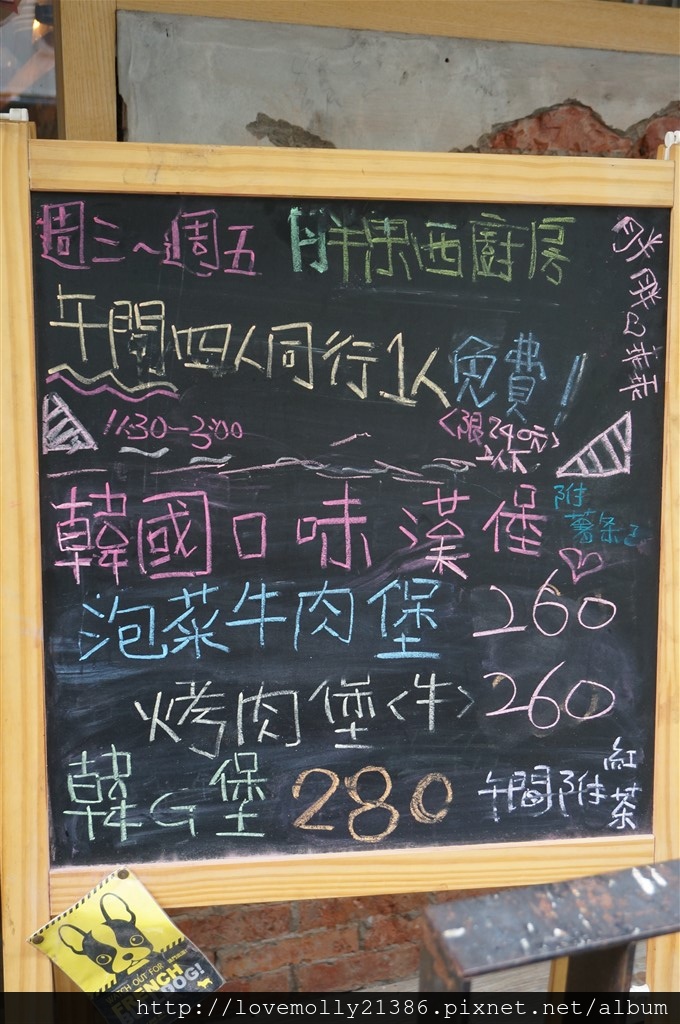 週三~週五 胖東西廚房
午間四人同行1人免費!
11:30-3:00
<限240元>
韓國口味漢堡
附
薯条
泡菜牛肉堡 260
烤肉堡<牛> 260
韓G堡 280
午間附
紅茶
WATCH OUT FOR
FRENCH
DOG!
http://lovemolly21386.pixnet.net/album